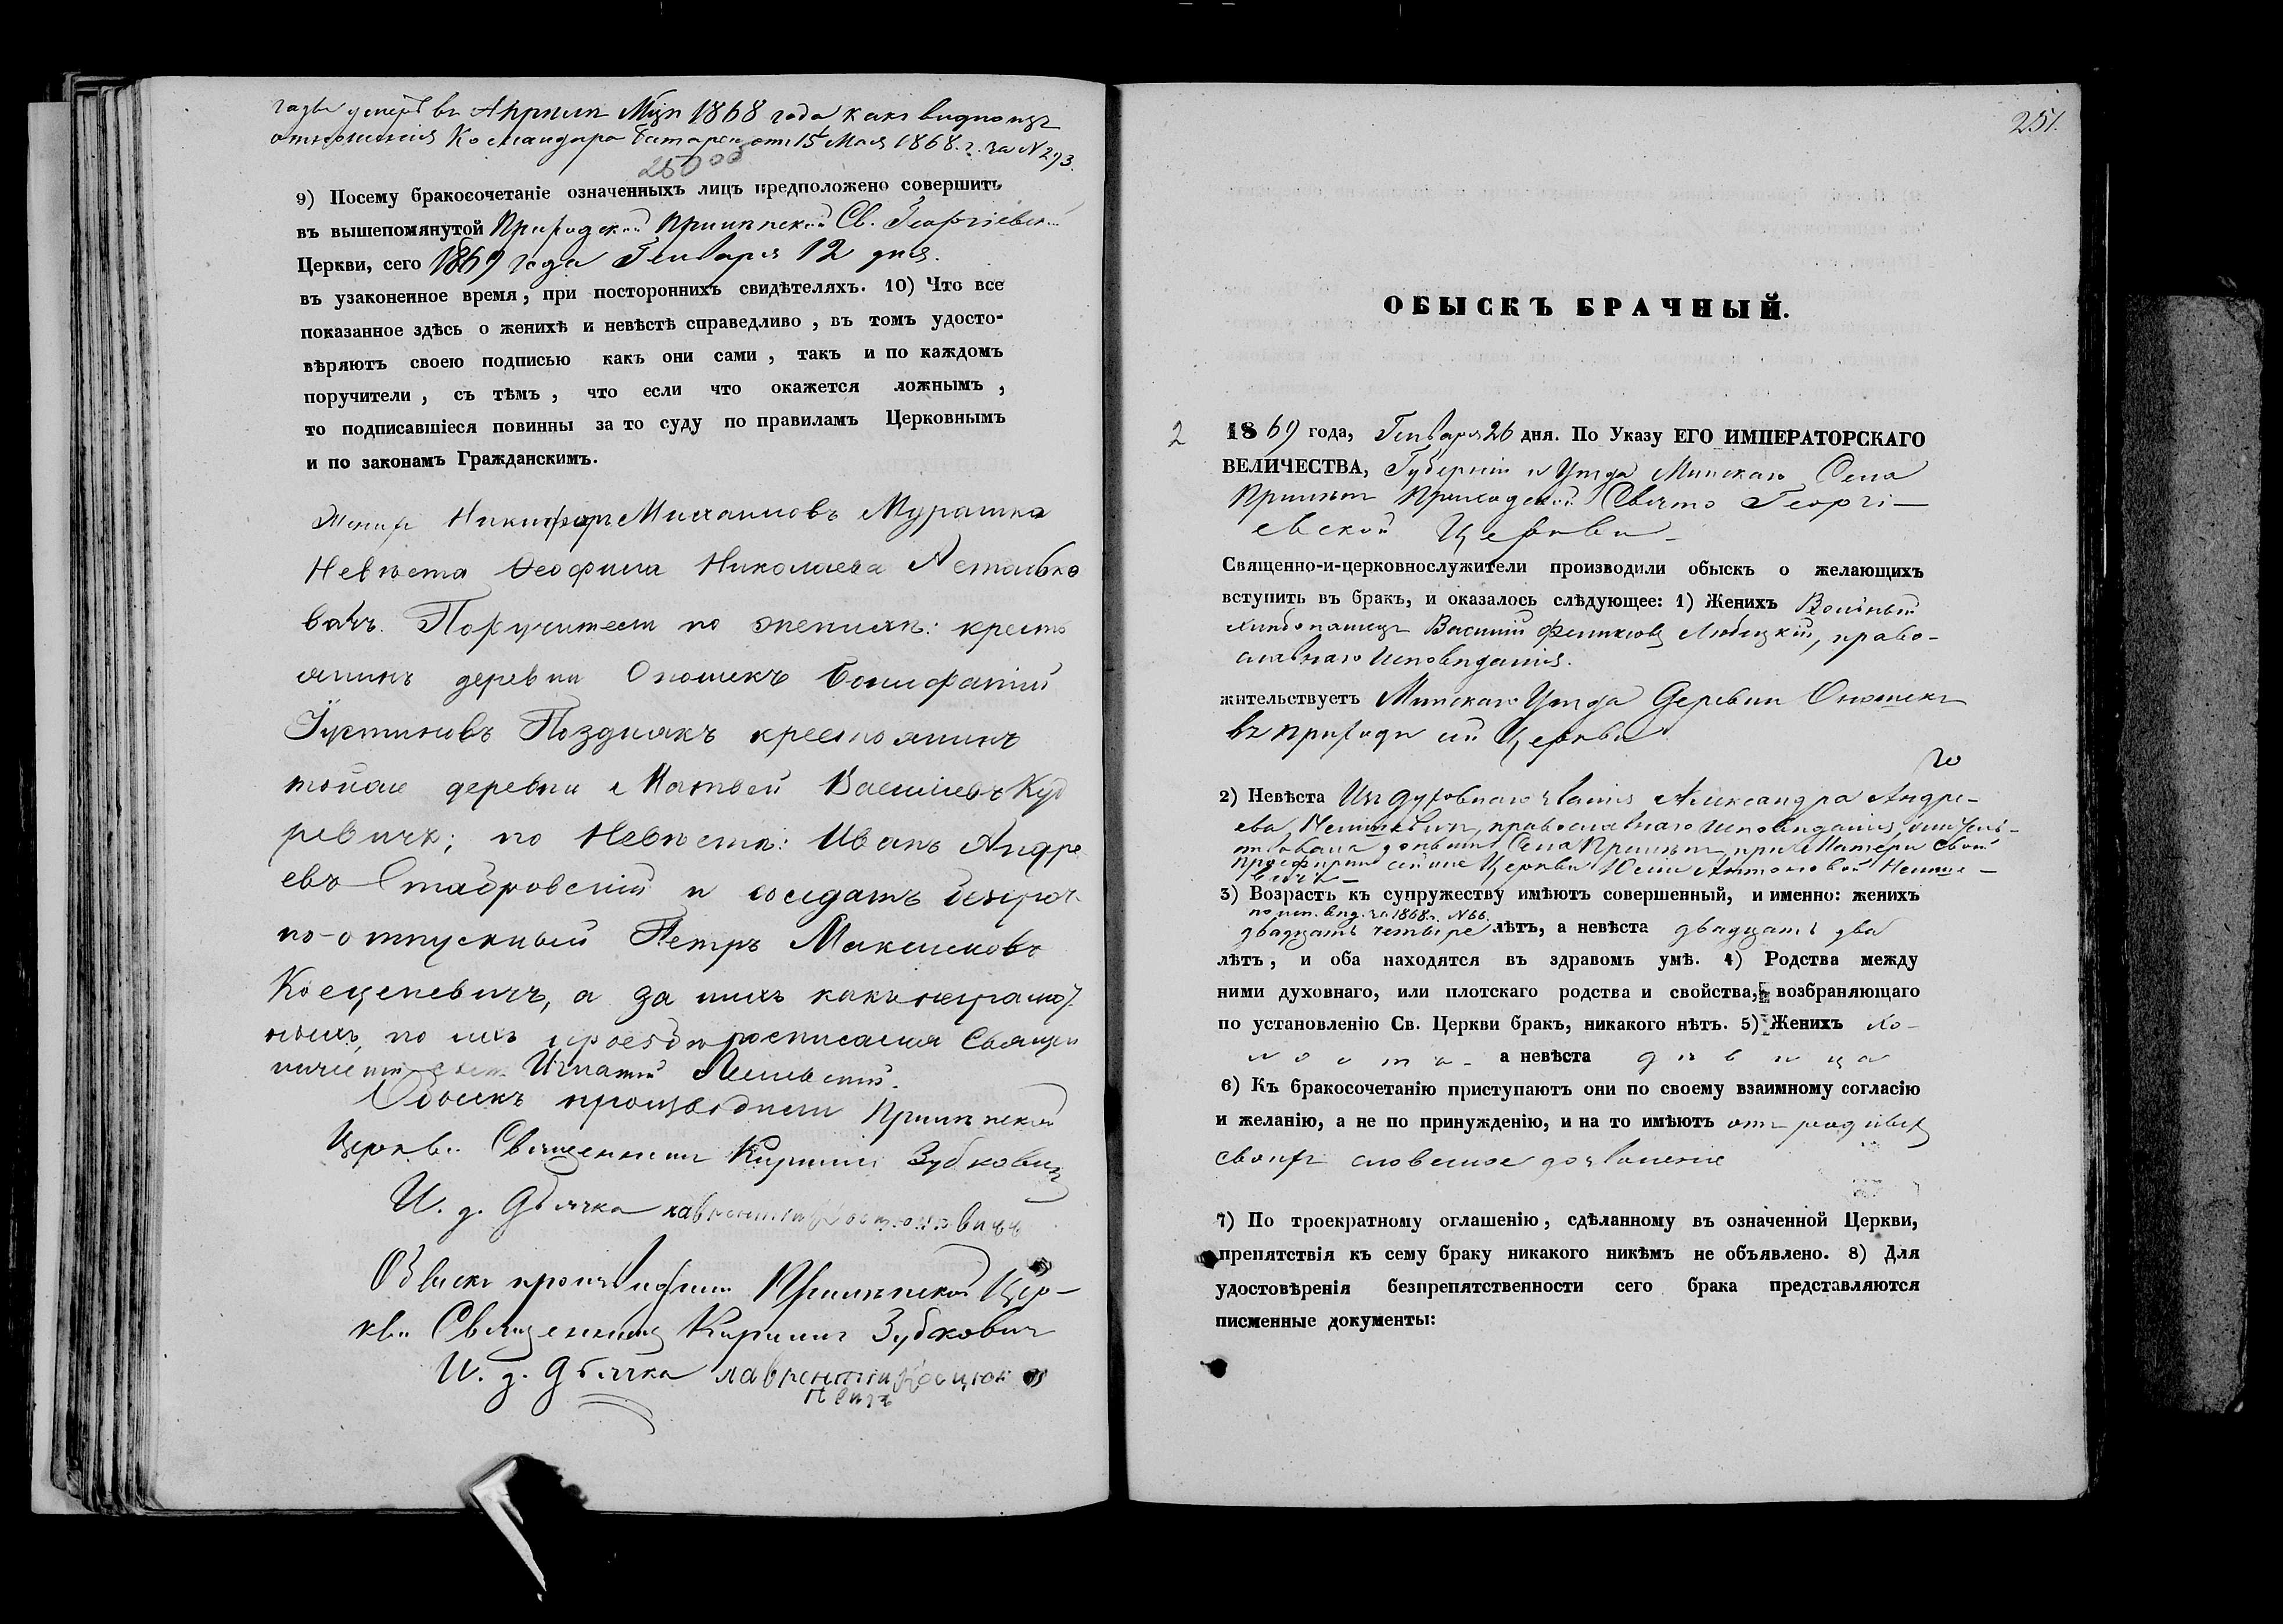 умеръ въ Апрѣлѣ Мцѣ 1868 года какъ видно изъ
отношенія Командира батареи отъ 15 Мая 1868 г. за N 293.
250
9) Посему бракосочетаніе означенныхъ лицъ предположено совершить
въ вышепомянутой Приходской Прилѣпской Св. Георгіевск..
Церкви, сего 1869 года Генваря 12 дня.
въ узаконенное время, при постороннихъ свидѣтеляхъ. 10) Что все
показанное здѣсь о женихѣ и невѣстѣ справедливо, въ томъ удосто-
вѣряютъ своею подписью какъ они сами, такъ и по каждомъ
поручители, съ тѣмъ, что если что окажется ложнымъ,
то подписавшіеся повинны за то суду по правиламъ Церковнымъ
и по законамъ Гражданскимъ.
Женихъ Никифоръ Михаиловъ Мурашка
Невѣста Ѳеофила Николаева
Поручители по женихѣ: кресть
янинъ деревни Опошекъ Бонифатій
Іустиновъ Позднякъ крестьянинъ
тойже деревни Матвей Васильевъ Куд
ревичъ; по Невѣстѣ: Иванъ Андре
евъ Ставровскій и солдатъ безсроч
но-отпускный Петръ Максимовъ
а за нихъ какъ неграмот
ныхъ, по ихъ прозьбѣ росписался Священ
Игнатій
Обыскъ производили Прилѣпской
Церкви Священникъ Кириллъ Зубковичъ
И. д. Дьячка Лаврентій
Обыскъ производили Прилѣпской Цер-
кви Священникъ Кириллъ Зубковичъ
И. д. Дьячка Лаврентій
251.
ОБЫСКЪ БРАЧНЫЙ.
2 1869 года, Генваря 26 дня. По Указу ЕГО ИМПЕРАТОРСКАГО
ВЕЛИЧЕСТВА, Губерніи и Уѣзда Минскаго Села
Прилѣпъ Приходской Свято Георгі-
евской Церкви
Священно-и-церковнослужители производили обыскъ о желающихъ
вступить въ бракъ, и оказалось слѣдующее: 1) Женихъ Вольный
хлѣбопашецъ Василій Феликсовъ Любецкій, право-
славнаго исповѣданія.
жительствуетъ Минскаго Уѣзда Деревни Опошекъ
въ приходѣ сей Церкви
2) Невѣста Изъ духовнаго званія Александра Андре-
ева православнаго исповѣданія, жительс-
твовала донынѣ Села Прилѣпъ, при Матери своей
Просфирни сейже Церкви Юліи Антоновой
3) Возрастъ къ супружеству имѣютъ совершенный, и именно: женихъ
по исп. вѣд. за 1868 г. N 66.
двадцать четыре лѣтъ, а невѣста двадцать два
лѣтъ, и оба находятся въ здравомъ умѣ. 4) Родства между
ними духовнаго, или плотскаго родства и свойства, возбраняющаго
по установленію Св. Церкви бракъ, никакого нѣтъ. 5) Женихъ хо-
лостъ а невѣста дѣвица
6) Къ бракосочетанію приступаютъ они по своему взаимному согласію
и желанію, а не по принужденію, и на то имѣютъ отъ родныхъ
своихъ словесное дозволеніе
7) По троекратному оглашенію, сдѣланному въ означенной Церкви,
препятствія къ сему браку никакого никѣмъ не объявлено. 8) Для
удостовѣренія безпрепятственности сего брака представляются
писменные документы: